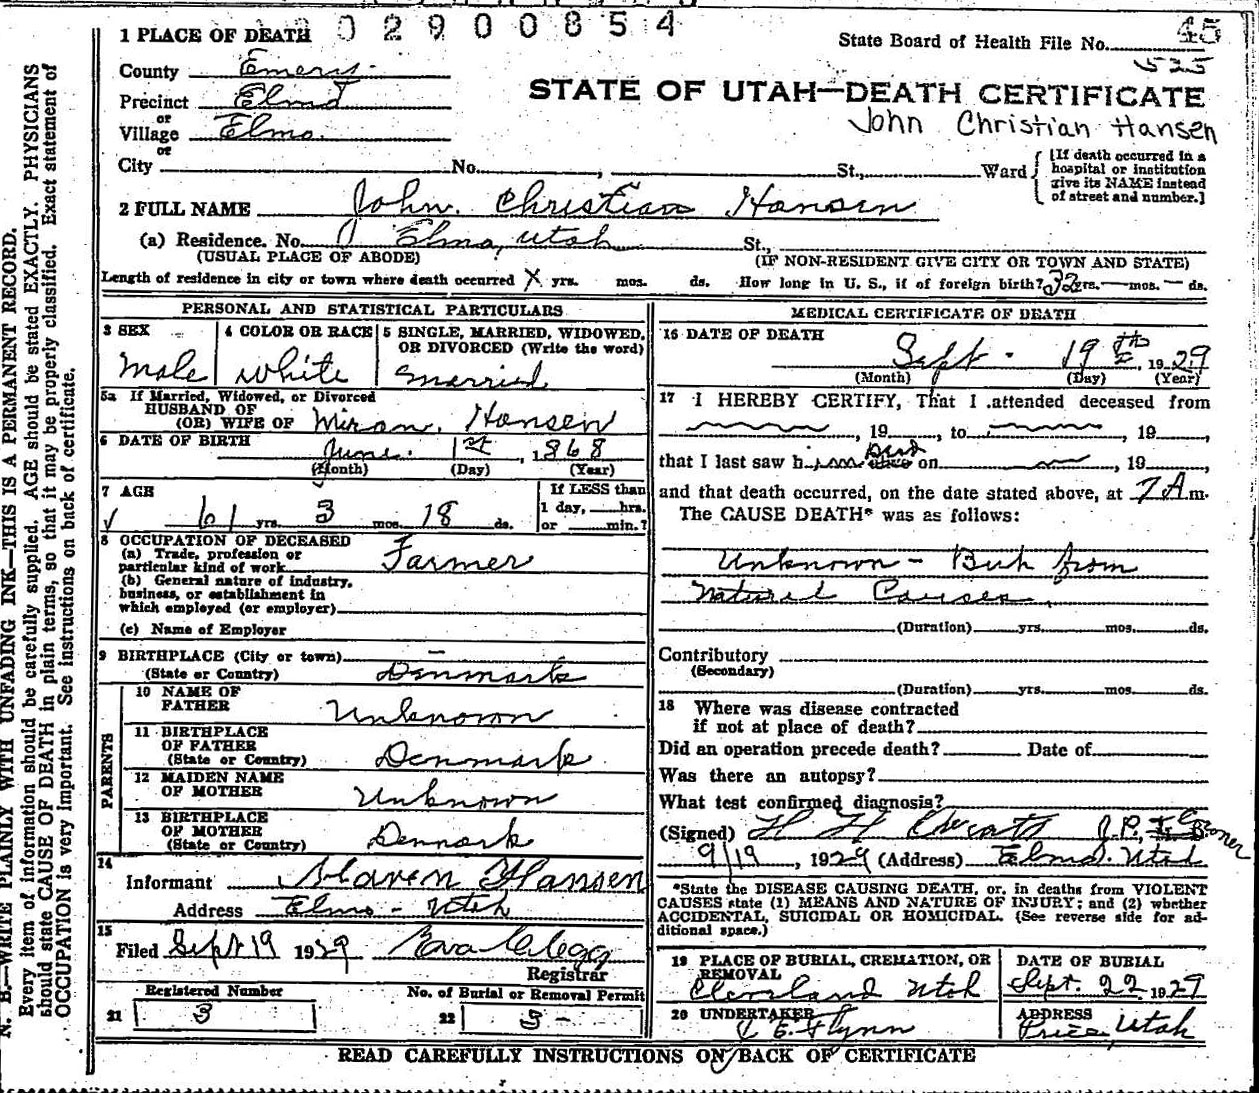 02900854
1 PLACE OF DEATH
State Board of Health File No. 45
525
County Emery
Precinct Elmo
or
Village Elmo
or
STATE OF UTAH—DEATH CERTIFICATE
John Christian Hansen
City No. , St., Ward
[If death occurred in a hospital or institution give its NAME instead of street and number.]
2 FULL NAME John Christian Hansen
(a) Residence. No. Elmo, Utah St.,
(USUAL PLACE OF ABODE) (IF NON-RESIDENT GIVE CITY OR TOWN AND STATE)
Length of residence in city or town where death occurred X yrs. mos. ds. How long in U. S., if of foreign birth? 32 yrs. — mos. — ds.
PERSONAL AND STATISTICAL PARTICULARS
3 SEX
Male
4 COLOR OR RACE
White
5 SINGLE, MARRIED, WIDOWED, OR DIVORCED (Write the word)
Married
5a If Married, Widowed, or Divorced
HUSBAND OF
(OR) WIFE OF Hansen
6 DATE OF BIRTH
June 1st, 1868
(Month) (Day) (Year)
7 AGE
61 yrs. 3 mos. 18 ds.
If LESS than
1 day, hrs.
or min.?
8 OCCUPATION OF DECEASED
(a) Trade, profession or
particular kind of work Farmer
(b) General nature of industry,
business, or establishment in
which employed (or employer)
(c) Name of Employer
9 BIRTHPLACE (City or town) —
(State or Country) Denmark
PARENTS
10 NAME OF
FATHER Unknown
11 BIRTHPLACE
OF FATHER
(State or Country) Denmark
12 MAIDEN NAME
OF MOTHER Unknown
13 BIRTHPLACE
OF MOTHER
(State or Country) Denmark
14
Informant Hansen
Address Elmo - Utah
15
Filed Sept 19 1929 Clegg
Registrar
Registered Number
21 3
No. of Burial or Removal Permit
22 3 -
MEDICAL CERTIFICATE OF DEATH
16 DATE OF DEATH
Sept. 19th, 1929
(Month) (Day) (Year)
17 I HEREBY CERTIFY, That I attended deceased from
, 19 , to , 19 ,
that I last saw him Dead alive on , 19 ,
and that death occurred, on the date stated above, at 7 A m.
The CAUSE DEATH* was as follows:
Unknown - But from
Natural Causes.
(Duration) yrs. mos. ds.
Contributory
(Secondary)
(Duration) yrs. mos. ds.
18 Where was disease contracted
if not at place of death?
Did an operation precede death? Date of
Was there an autopsy?
What test confirmed diagnosis?
(Signed) H H J.P. Coroner
9/19, 1929 (Address) Elmo, Utah
*State the DISEASE CAUSING DEATH, or, in deaths from VIOLENT
CAUSES state (1) MEANS AND NATURE OF INJURY; and (2) whether
ACCIDENTAL, SUICIDAL OR HOMICIDAL. (See reverse side for ad-
ditional space.)
19 PLACE OF BURIAL, CREMATION, OR
REMOVAL
Cleveland Utah
DATE OF BURIAL
Sept. 22 1929
20 UNDERTAKER
E Flynn
ADDRESS
Price, Utah
READ CAREFULLY INSTRUCTIONS ON BACK OF CERTIFICATE
N. B.—WRITE PLAINLY WITH UNFADING INK—THIS IS A PERMANENT RECORD.
Every item of information should be carefully supplied. AGE should be stated EXACTLY. PHYSICIANS
should state CAUSE OF DEATH in plain terms, so that it may be properly classified. Exact statement of
OCCUPATION is very important. See instructions on back of certificate.